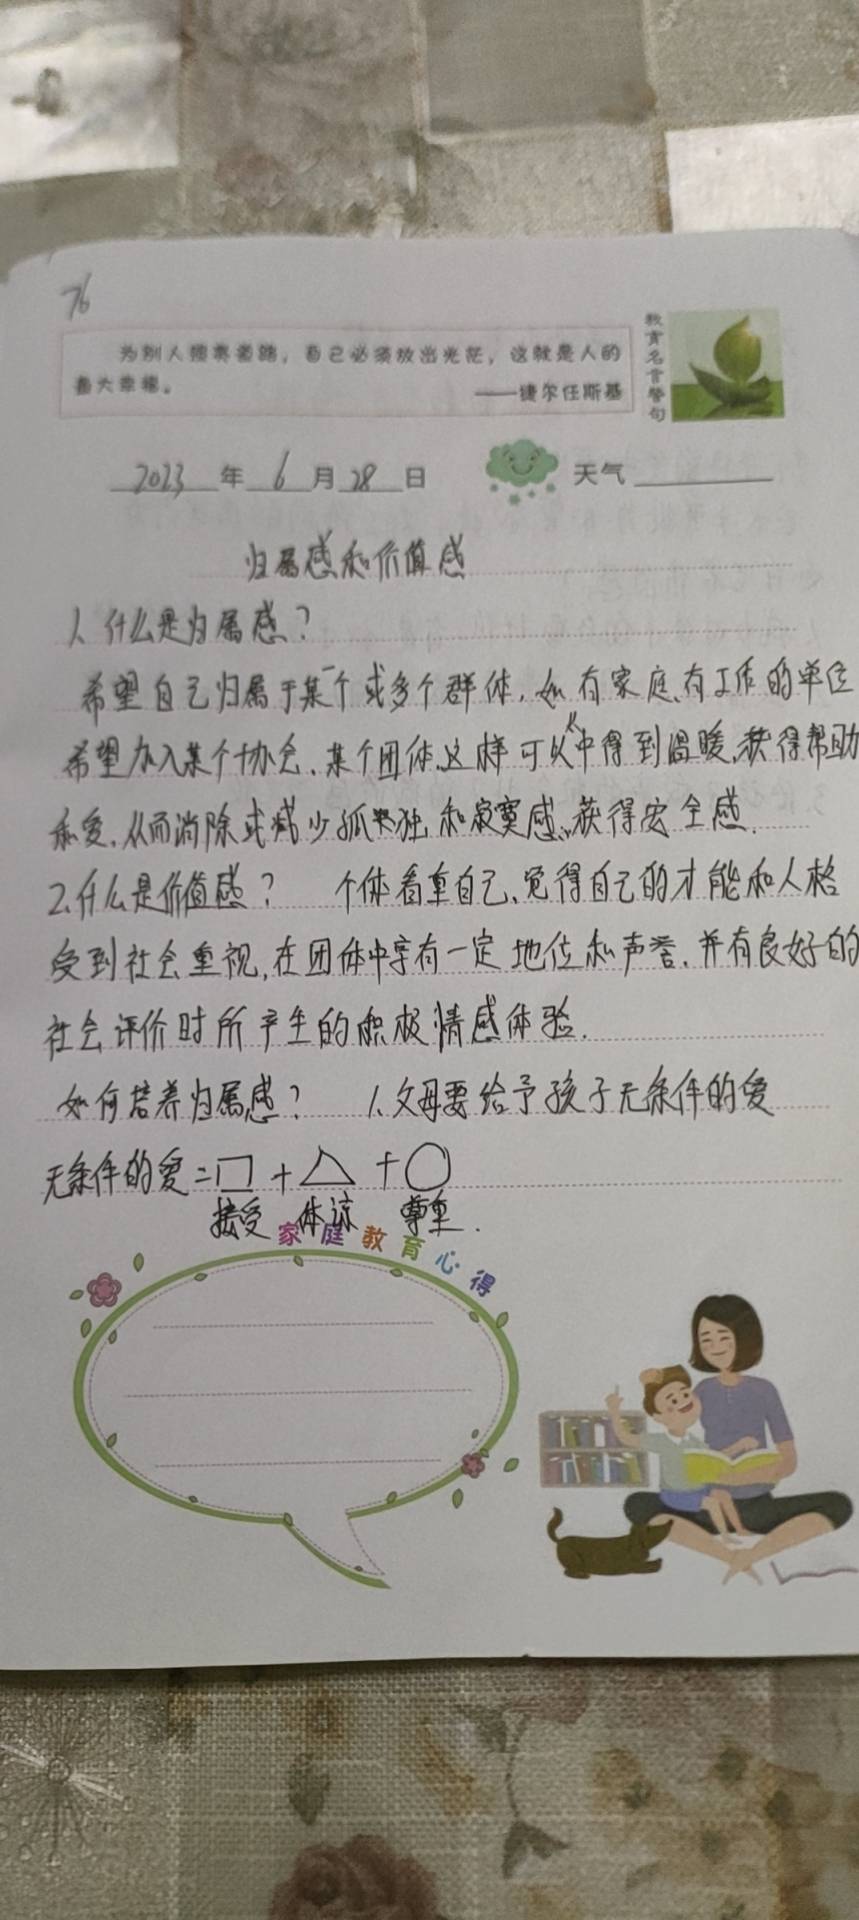 76
为别人照亮道路，自己必须放出光芒，这就是人的
最大幸福。
——捷尔任斯基
教育名言警句
2023年6月28日 天气
归属感和价值感
1、什么是归属感？
希望自己归属于某一个或多个群体，如有家庭、有工作的单位
希望加入某个协会、某个团体，这样可以从中得到温暖，获得帮助
和爱，从而消除或减少孤独和寂寞感，获得安全感．
2、什么是价值感？ 个体看重自己、觉得自己的才能和人格
受到社会重视，在团体中享有一定地位和声誉，并有良好的
社会评价时所产生的积极情感体验．
如何培养归属感？ 1、父母要给予孩子无条件的爱
无条件的爱=□+△+○
接受 体谅 尊重．
家庭教育心得